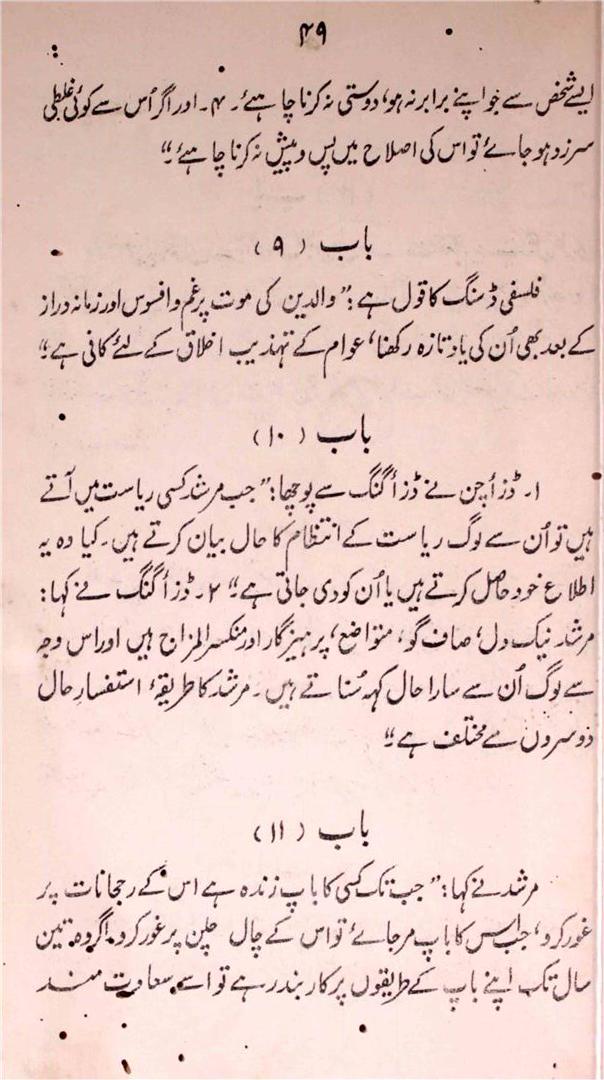 ۴۹
ایسے شخص سے جو اپنے برابر نہ ہو، دوستی نہ کرنا چاہئے۔ ۴۔ اور اگر اُس سے کوئی غلطی
سرزد ہو جائے تو اس کی اصلاح میں پس و پیش نہ کرنا چاہئے۔"
باب (۹)
فلسفی ڈسنگ کا قول ہے:" والدین کی موت پر غم و افسوس اور زمانہ دراز
کے بعد بھی اُن کی یاد تازہ رکھنا، عوام کے تہذیب اخلاق کے لئے کافی ہے"
باب (۱۰)
۱۔ ڈز أچن نے ڈز أگنگ سے پوچھا:" جب مرشد کسی ریاست میں آتے
ہیں تو اُن سے لوگ ریاست کے انتظام کا حال بیان کرتے ہیں۔ کیا وہ یہ
اطلاع خود حاصل کرتے ہیں یا اُن کو دی جاتی ہے۔" ۲۔ ڈز أگنگ نے کہا:
مرشد نیک دل، صاف گو، متواضع، پرہیزگار اور منکسر المزاج ہیں اور اس وجہ
سے لوگ اُن سے سارا حال کہہ سُناتے ہیں۔ مرشد کا طریقۂ استفسارِ حال
دوسروں سے مختلف ہے۔"
باب (۱۱)
مرشد نے کہا:" جب تک کسی کا باپ زندہ ہے اس کے رجحانات پر
غور کرو، جب اس کا باپ مر جائے تو اس کے چال چلن پر غور کرو۔ اگر وہ تین
سال تک اپنے باپ کے طریقوں پر کاربند رہے تو اسے سعادت مند